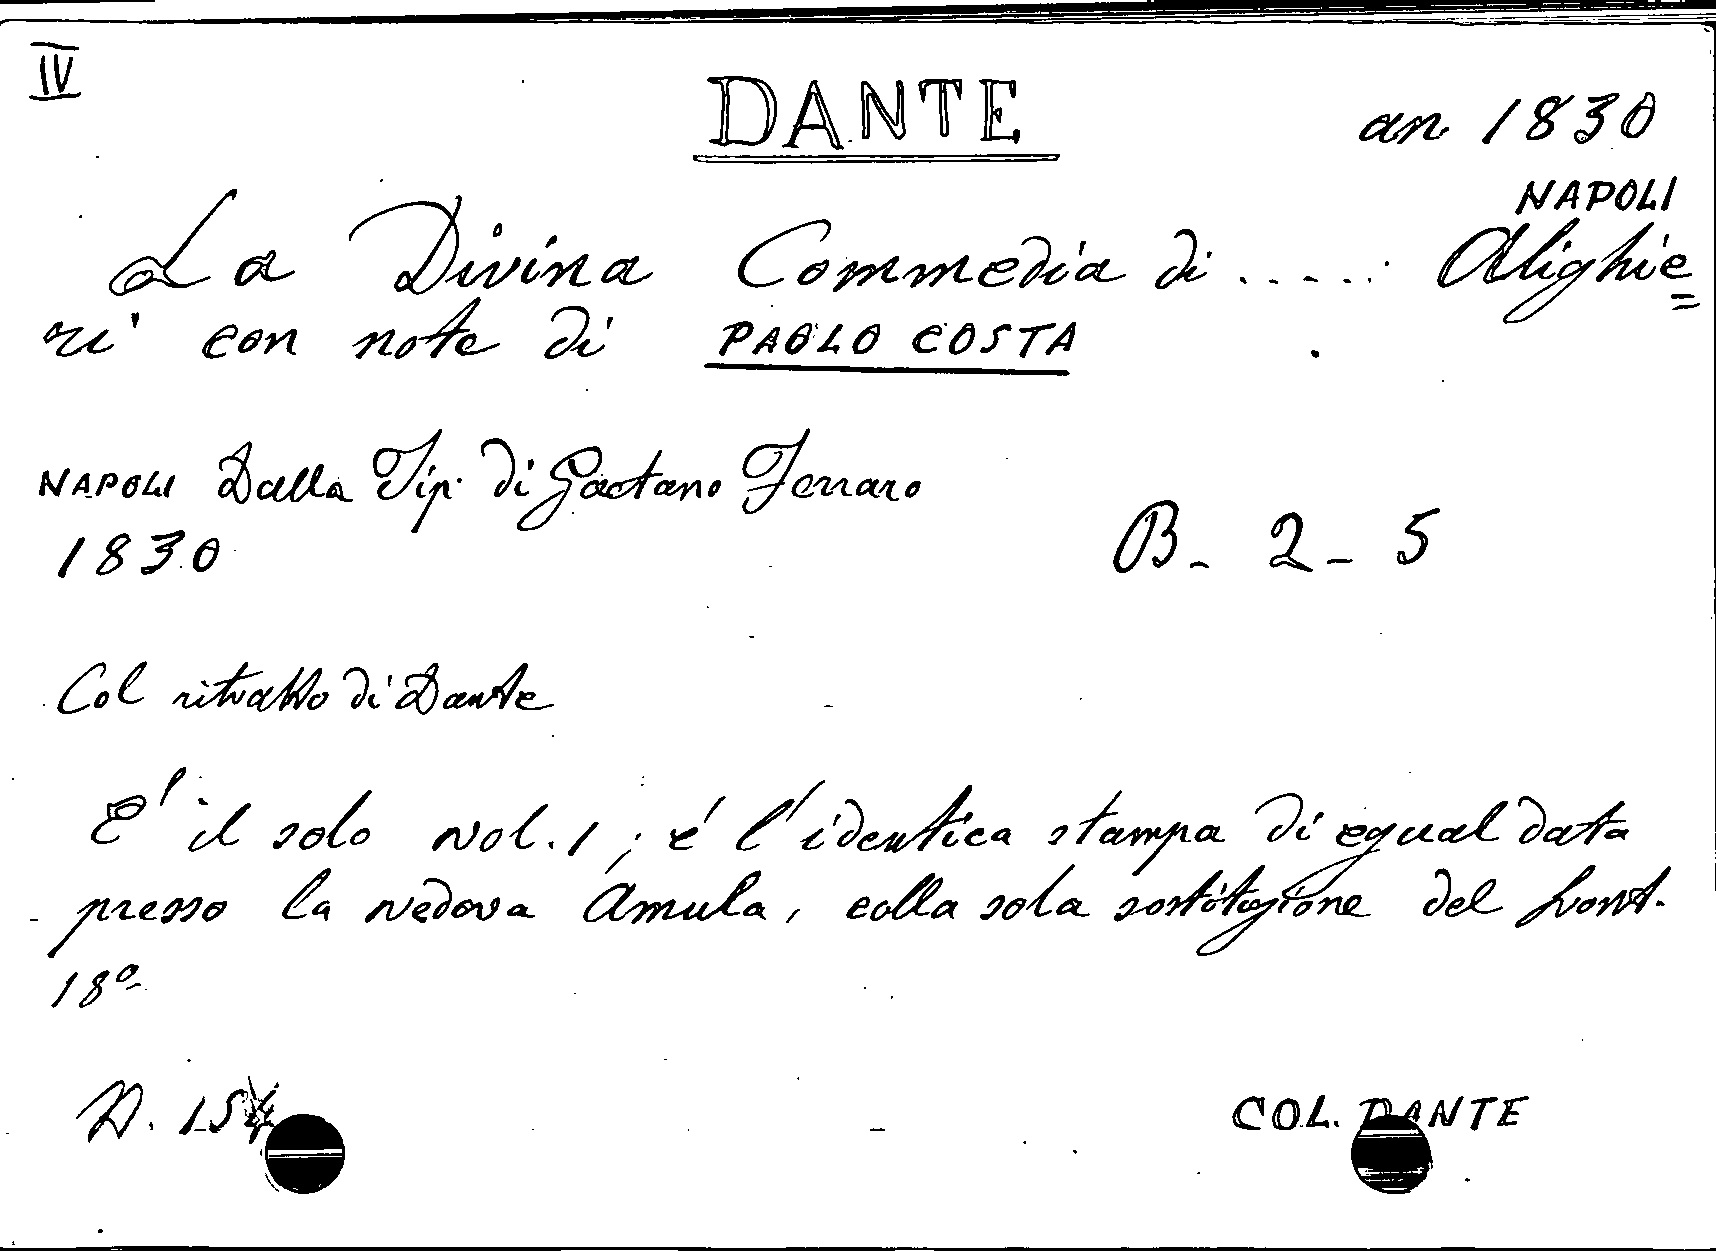 IV
DANTE
an 1830
NAPOLI
La Divina Commedia di ..... Alighie=
ri con note di PAOLO COSTA
NAPOLI Dalla Tip. di Gaetano Ferraro
1830
B - 2 - 5
Col ritratto di Dante
E' il solo vol. 1; é l'identica stampa di egual data
presso la vedova Amula, colla sola sostituzione del front.
18º
COL. DANTE